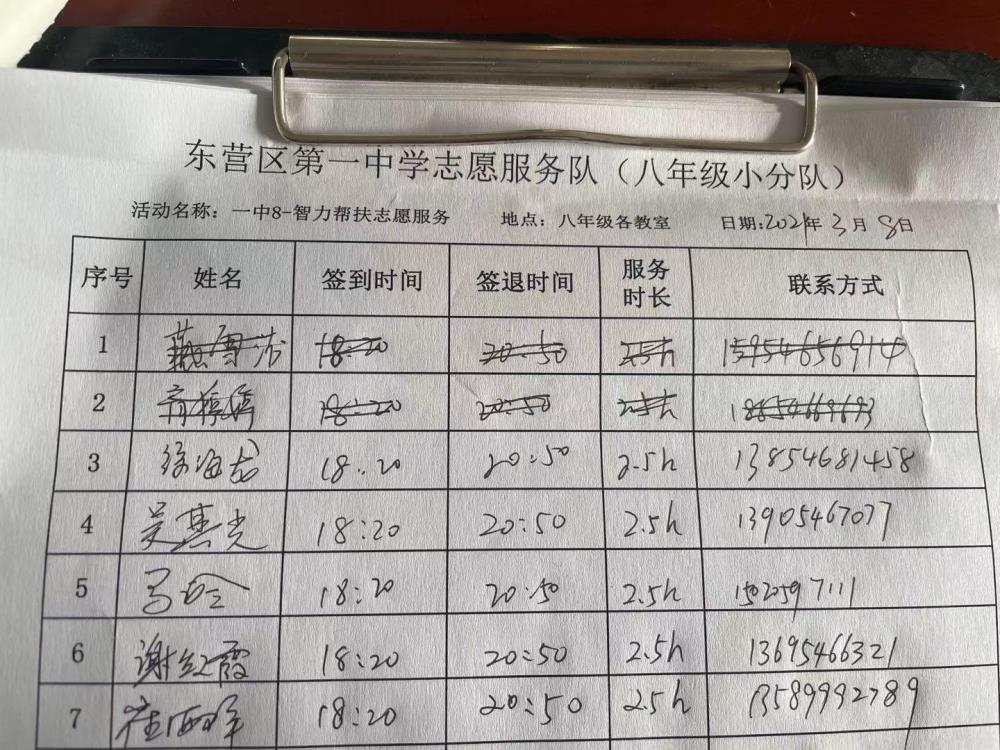 东营区第一中学志愿服务队（八年级小分队）
活动名称：一中8-智力帮扶志愿服务 地点：八年级各教室 日期:2021年 3月 8日
序号 姓名 签到时间 签退时间 服务时长 联系方式
1 18:20 20:50 2.5h 15954656914
2 18:20 20:50 2.5h
3 徐海龙 18:20 20:50 2.5h 13854681458
4 吴基光 18:20 20:50 2.5h 13905467077
5 马玲 18:20 20:50 2.5h
6 谢红霞 18:20 20:50 2.5h 13695466321
7 18:20 20:50 2.5h 13589992789